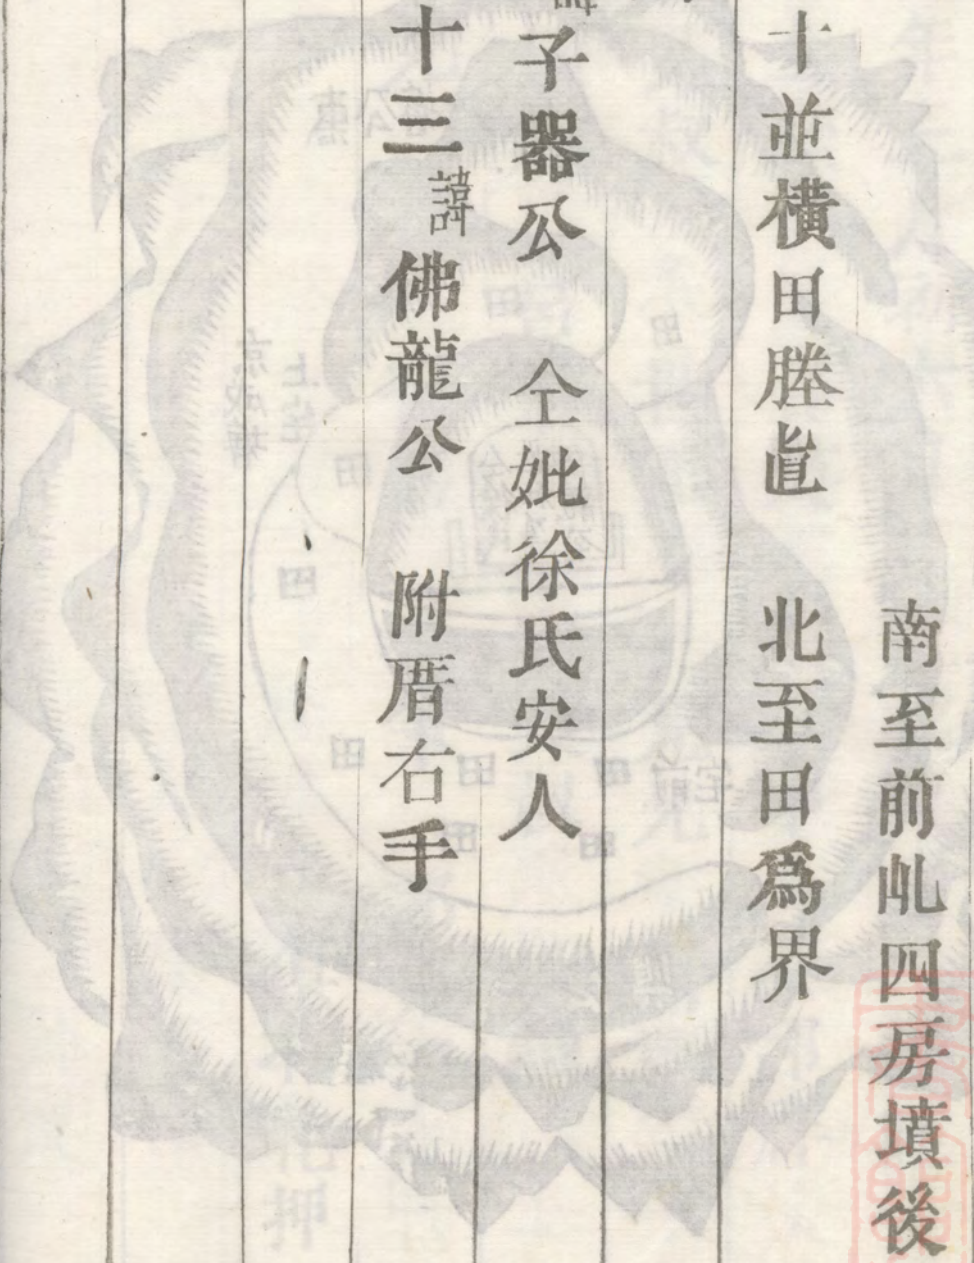 南至前乢四房墳後
十並橫田塍直 北至田為界
子器公 仝妣徐氏安人
十三諱佛龍公 附厝右手